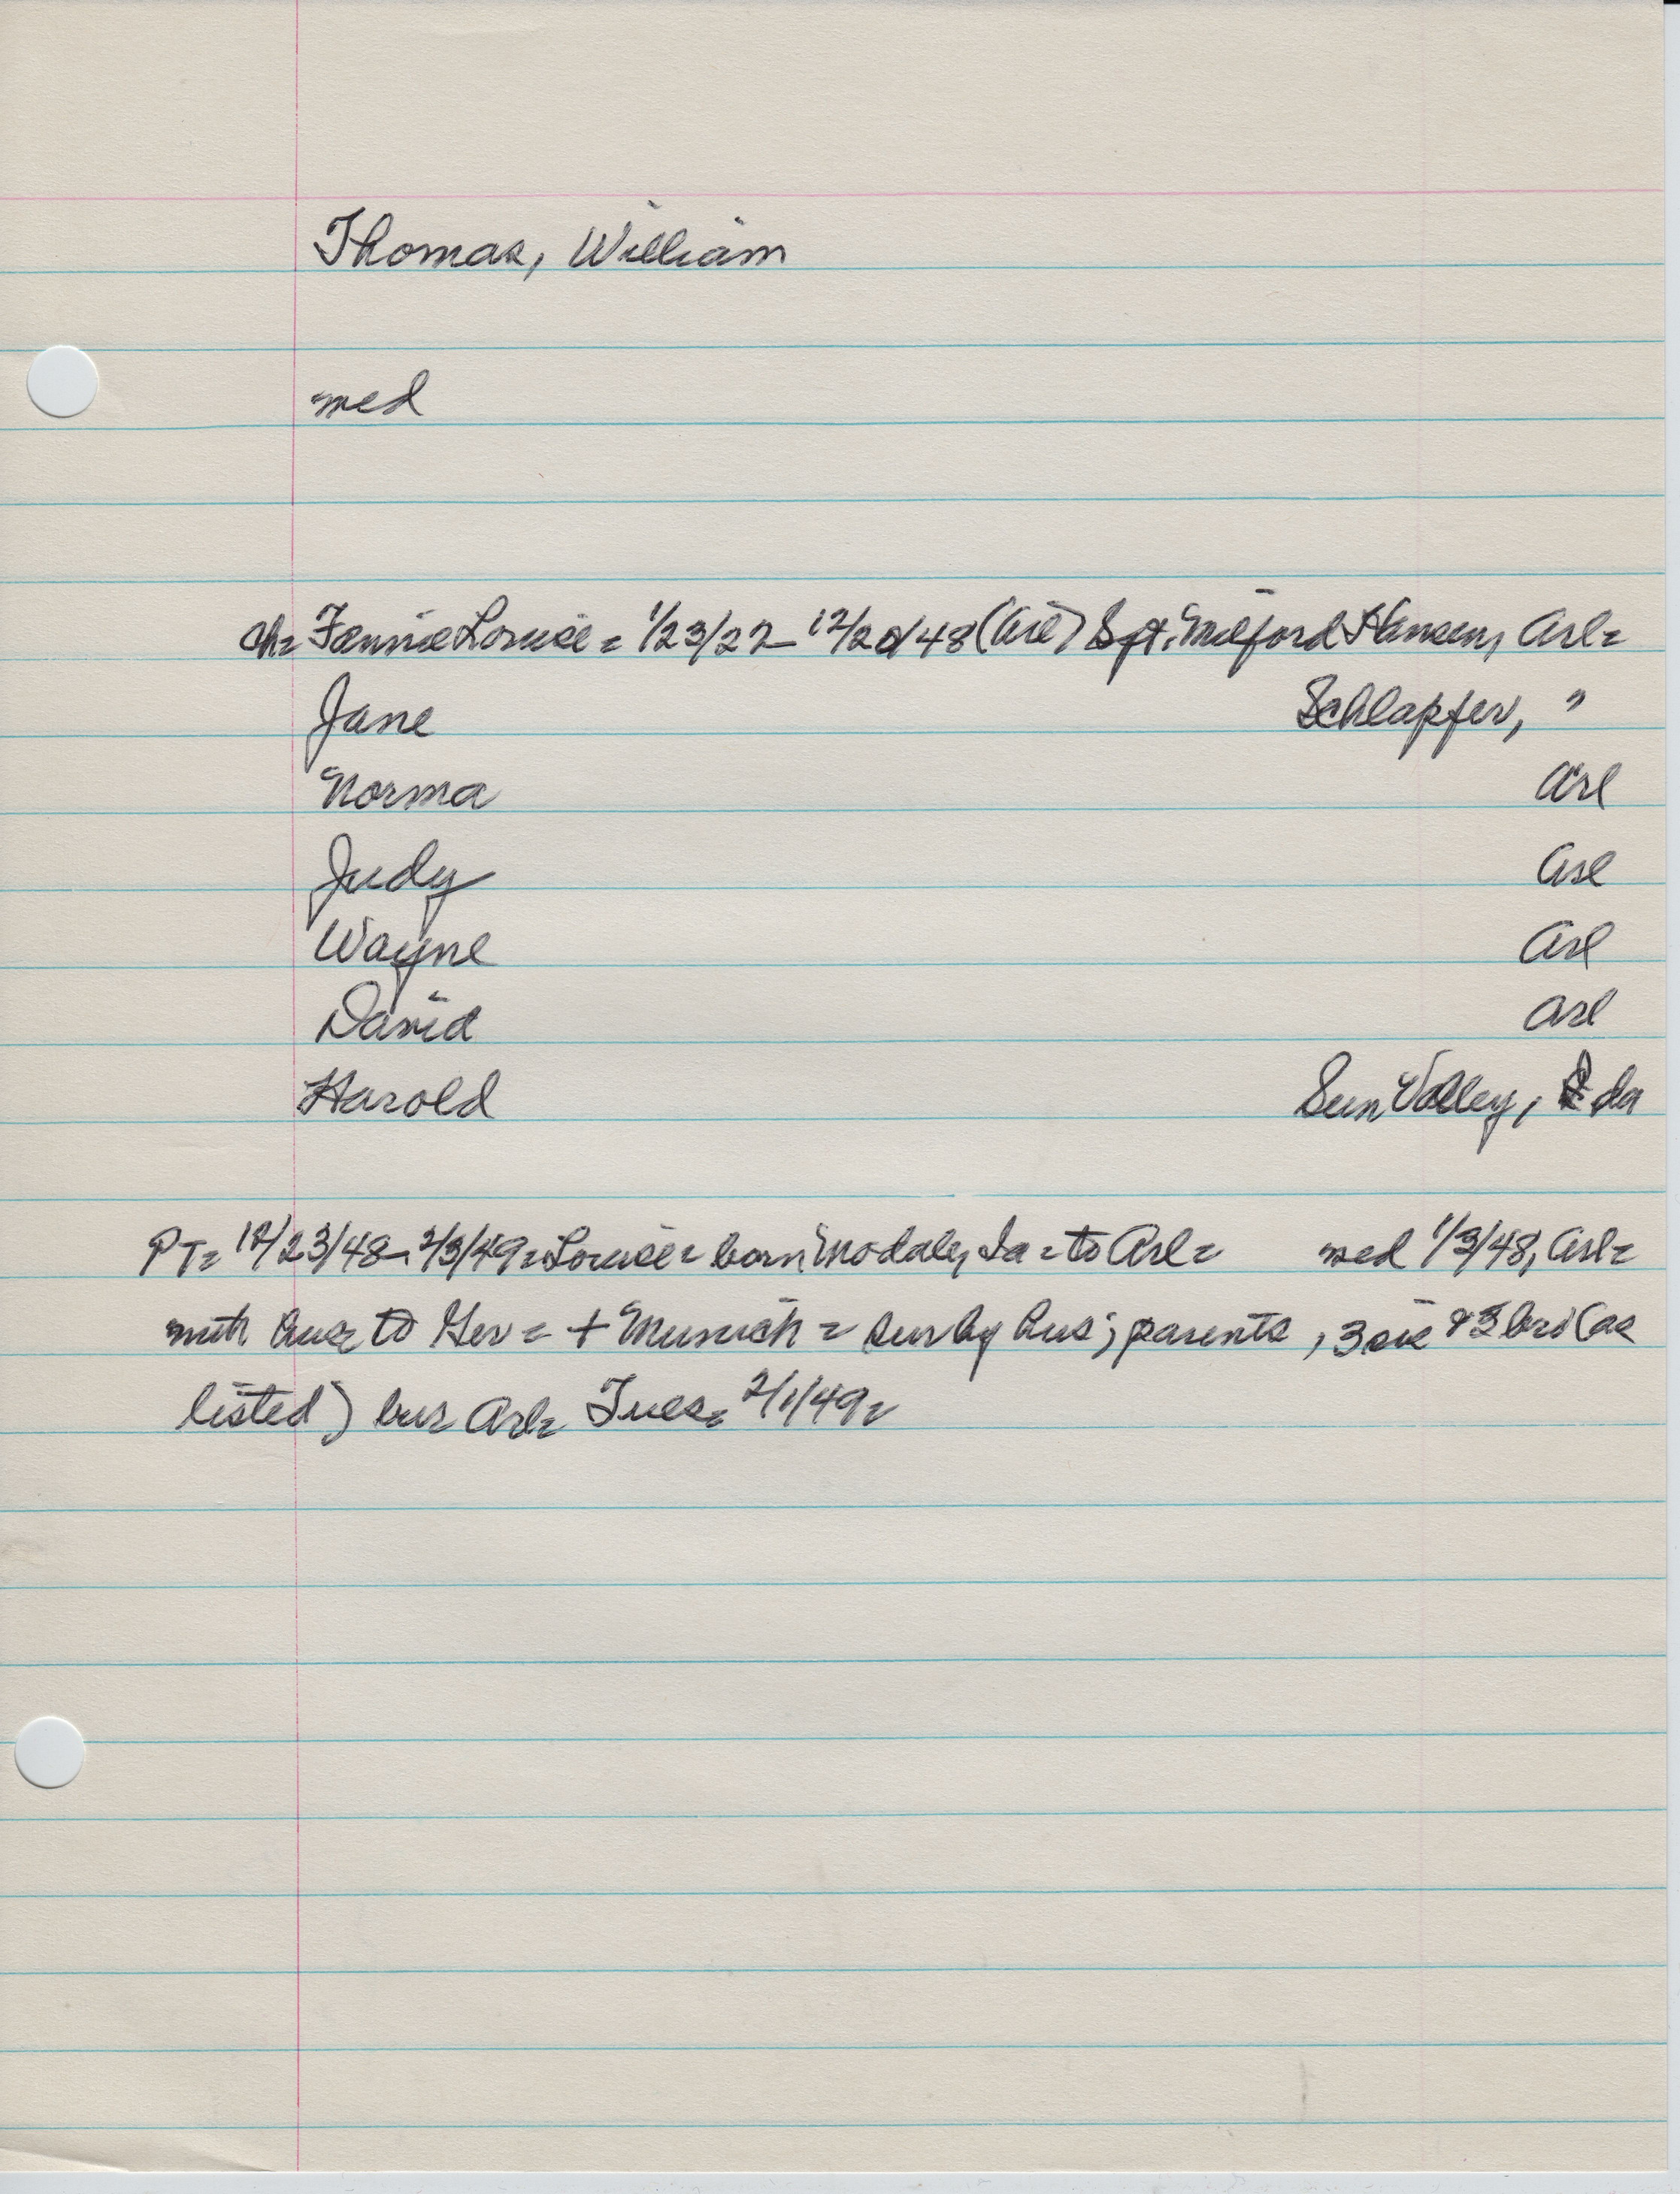 Thomas, William
med
ch= Fannie Louise = 1/23/22 - 12/20/48 (Arl) Sgt. Milford Hansen, Arl=
Jane Schlapfer, "
Norma Arl
Judy Arl
Wayne Arl
David Arl
Harold Sun Valley, Ida
PT= 12/23/48 - 2/3/49 = Louise = born Modale, Ia = to Arl = med 1/3/48, Arl=
with hus to Ger = + Munich = sur by hus; parents, 3 sis & 3 bro (as
listed) bur Arl= Tues= 2/1/49=